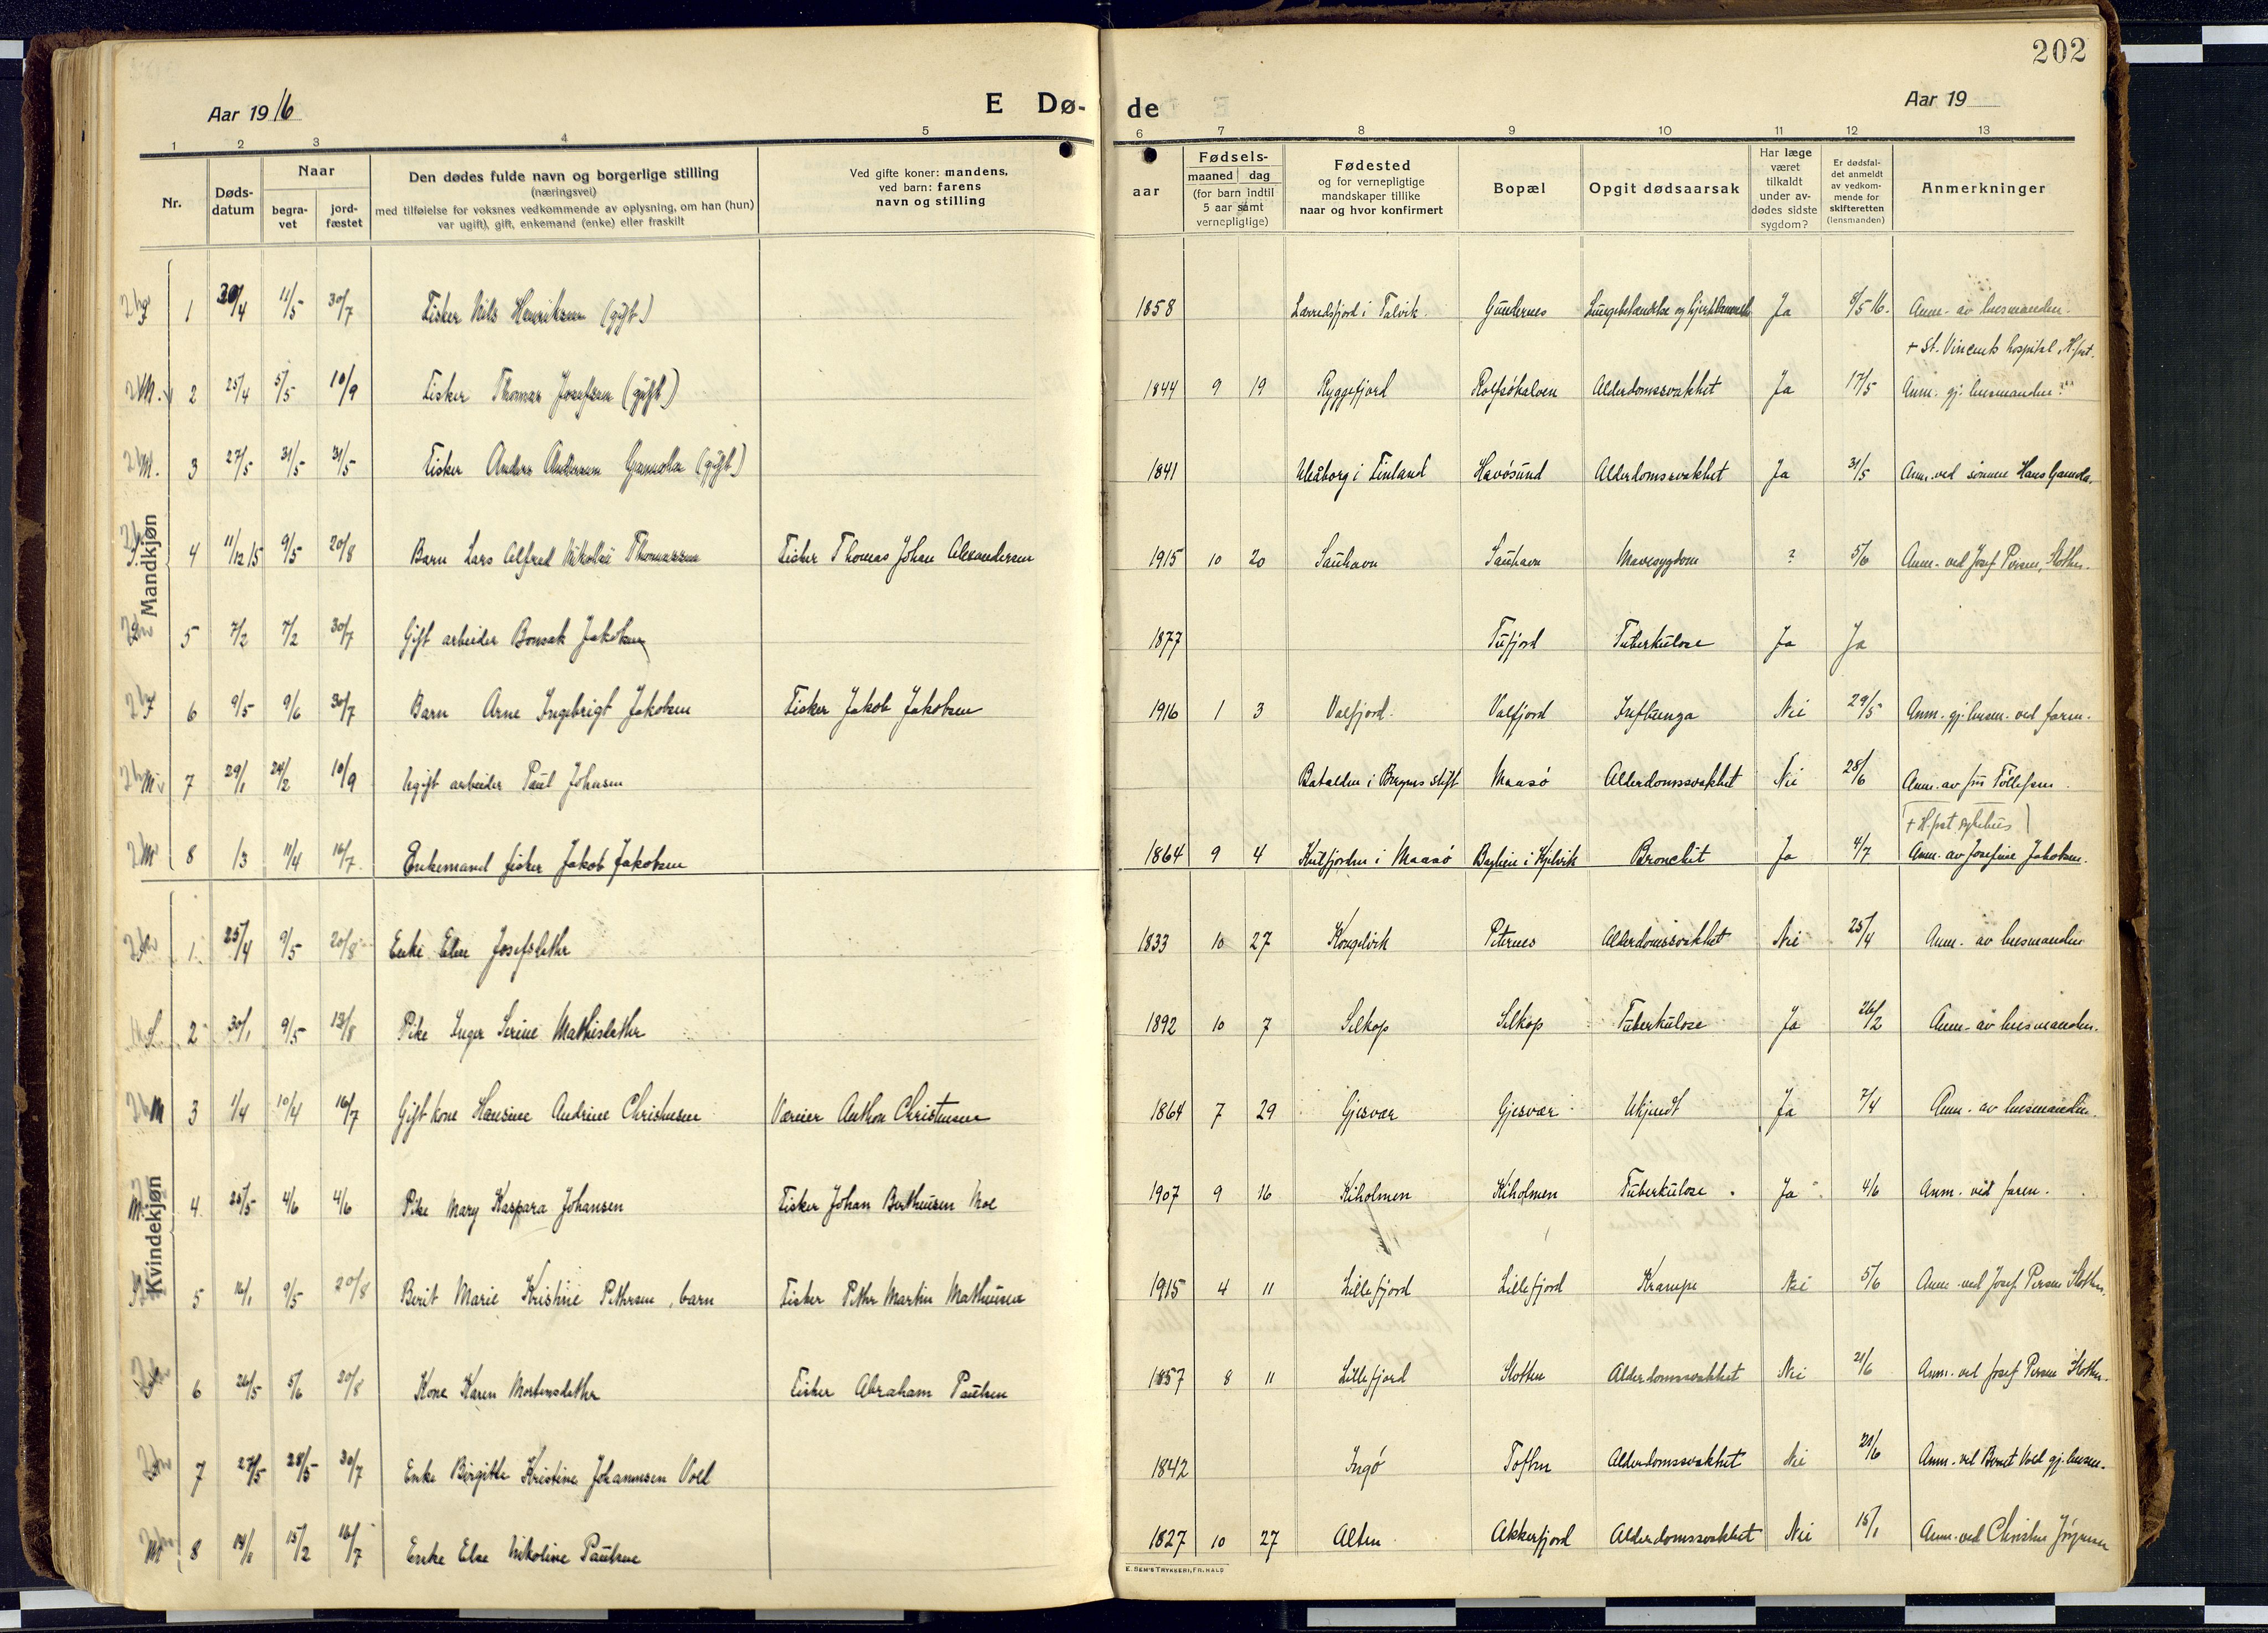 202
Aar 1916
E Dø-
de
Aar 19
1 2 3 4 5 6 7 8 9 10 11 12 13
Nr.
Døds-
datum
Naar
begra-
vet
jord-
fæstet
Den dødes fulde navn og borgerlige stilling
(næringsvei)
med tilføielse for voksnes vedkommende av oplysning, om han (hun)
var ugift), gift, enkemand (enke) eller fraskilt
Ved gifte koner: mandens,
ved barn: farens
navn og stilling
aar
Fødsels-
maaned dag
(for barn indtil
5 aar samt
vernepligtige)
Fødested
og for vernepligtige
mandskaper tillike
naar og hvor konfirmert
Bopæl
Opgit dødsaarsak
Har læge
været
tilkaldt
under av-
dødes sidste
sygdom?
Er dødsfal-
det anmeldt
av vedkom-
mende for
skifteretten
(lensmanden)
Anmerkninger
Mandkjøn
1 30/4 11/5 30/7 Fisker Nils Henriksen (gift.) 1858 i Talvik Gunernes Ja 8/5 16. Anm. av lensmanden.
+ St. Vincents hospital, H.fest.
2 25/4 5/5 10/9 Fisker Thomas Josefsen (gift) 1844 9 19 Ryggefjord Rolfsøhalven Alderdomssvakhet Ja 17/5 Anm. gj. lensmanden
3 27/5 31/5 31/5 Fisker Anders Andersen Gamola (gift) 1841 Uleåborg i Finland Havøsund Alderdomssvakhet Ja 31/5 Anm. ved sønnen Hans Gamola.
4 11/12 15 9/5 20/8 Barn Lars Alfred Nikolai Thomassen Fisker Thomas Johan Alexandersen 1915 10 20 Sauhavn Sauhavn Mavesygdom ? 5/6 Anm. ved Josef Persen, Slotten.
5 7/2 7/2 30/7 Gift arbeider Bonsak Jakobsen 1877 Tufjord Tuberkulose Ja Ja
6 9/5 9/6 30/7 Barn Arne Ingebrigt Jakobsen Fisker Jakob Jakobsen 1916 1 3 Valfjord. Valfjord Influenza Nei 29/5 Anm. gj. lensm. ved faren.
7 29/1 24/2 10/9 Ugift arbeider Paul Johnsen Batalden i Bergens stift Maasø Alderdomssvakhet Nei 28/6 Anm. av fru Tollefsen.
+ H.fest sykehus
8 1/3 11/4 16/7 Enkemand fisker Jakob Jakobsen 1864 9 4 Kulfjorden i Maasø i Kjelvik Bronchit Ja 4/7 Anm. av Josefine Jakobsen.
Kvindekjøn
1 25/4 9/5 20/8 Enke Elen Josefsdtr 1833 10 27 Kongelvik Peternes Alderdomssvakhet Nei 25/4 Anm. av lensmanden
2 30/1 9/5 13/8 Pike Inger Serine Mathisdtr 1892 10 7 Selkop Selkop Tuberkulose Ja 26/2 Anm. av lensmanden.
3 1/4 10/4 16/7 Gift kone Hansine Andrine Christensen Væreier Anthon Christensen 1864 7 29 Gjesvær Gjesvær Ukjendt Ja 7/4 Anm. av lensmanden.
4 25/5 4/6 4/6 Pike Mary Kaspara Johansen Fisker Johan Bertheusen Moe 1907 9 16 Kiholmen Kiholmen Tuberkulose. Ja 4/6 Anm. ved faren.
5 16/1 9/5 20/8 Berit Marie Kristine Pethrsen, barn Fisker Pethr Martin Mathisen 1915 4 11 Lillefjord Lillefjord Krampe Nei 5/6 Anm. ved Josef Persen Slotten.
6 26/5 5/6 20/8 Kone Karen Mortensdtr Fisker Abraham Paulsen 1857 8 11 Lillefjord Slotten Alderdomssvakhet Nei 21/6 Anm. ved Josef Persen Slotten.
7 27/5 28/5 30/7 Enke Birgitte Kristine Johannesen Voll 1842 Ingø Toften Alderdomssvakhet Nei 21/6 Anm. ved Bernt Voll gj. lensm.
8 14/1 15/2 16/7 Enke Else Nikoline Paulsen 1827 10 27 Alten Akkerfjord Alderdomssvakhet Nei 15/1 Anm. ved Christen Jørgensen
E. SEM'S TRYKKERI, FR. HALD